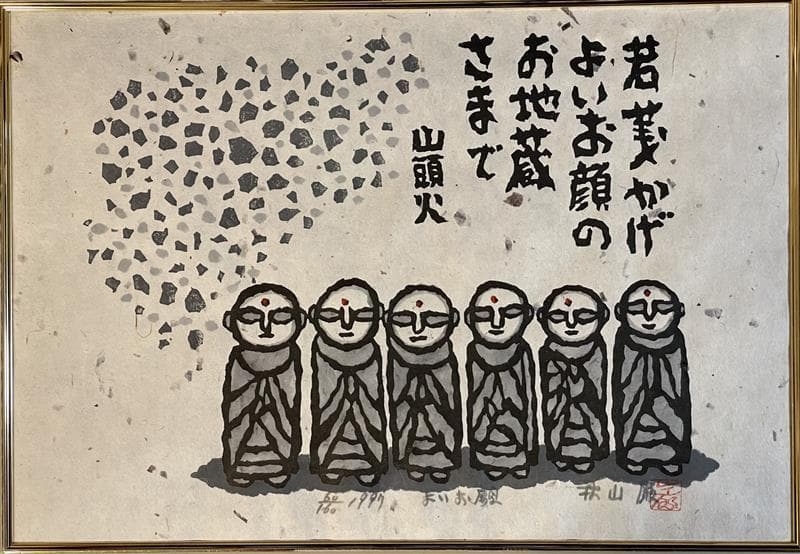 若葉かげ
よいお顔の
お地蔵
さまで
山頭火
60/160 1997 よいお顔 秋山 巌